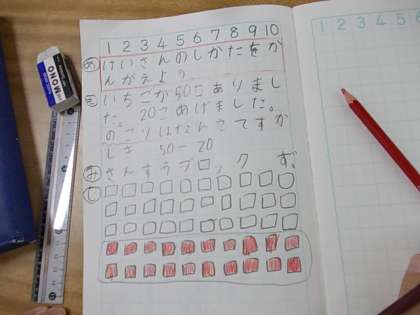 1 2 3 4 5 6 7 8 9 10
1 2 3 4 5 6
め けいさんのしかたをか
んがえよう。
も いちごが50こありまし
た。20こあげました。
のこりはなんこですか
しき 50-20
ず さんすうブロック ず。
じ
MONO